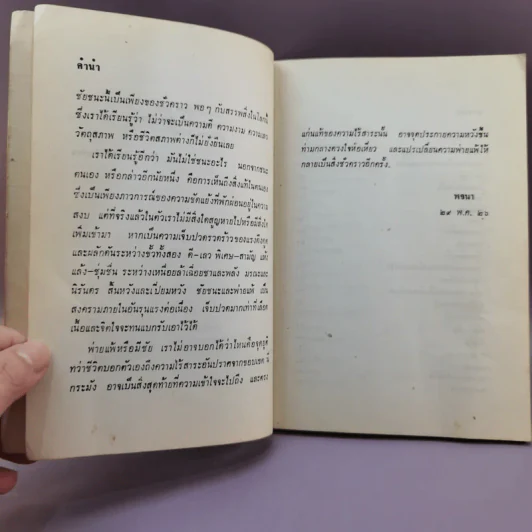 คำนำ
ชัยชนะนี้เป็นเพียงของชั่วคราว พอๆ กับสรรพสิ่งในโลกนี้
ซึ่งเราได้เรียนรู้ว่า ไม่ว่าจะเป็นความดี ความงาม ความเลว
วัตถุสภาพ หรือชีวิตสภาพต่างก็ไม่ยั่งยืนเลย
เราได้เรียนรู้อีกว่า มันไม่ใช่ชนะอะไร นอกจากชนะ
ตนเอง หรือกล่าวอีกนัยหนึ่ง คือการเห็นถึงสิ่งแท้ในตนเอง
ซึ่งเป็นเพียงภาวการณ์ของความขัดแย้งที่พักผ่อนอยู่ในความ
สงบ แต่ที่จริงแล้วในตัวเราไม่มีสิ่งใดสูญหายไปหรือมีสิ่งใด
เพิ่มเข้ามา หากเป็นความเจ็บปวดรวดร้าวของแรงดึงดูด
และผลักดันระหว่างขั้วทั้งสอง ดี-เลว พิเศษ-สามัญ แห้ง
แล้ง-ชุ่มชื่น ระหว่างเหนื่อยล้าเฉื่อยชาและพลัง มรณะและ
นิรันดร สิ้นหวังและเปี่ยมหวัง ชัยชนะและพ่ายแพ้ เป็น
สงครามภายในอันรุนแรงต่อเนื่อง เจ็บปวดมากเท่าที่เลือด
เนื้อและจิตใจจะทนแบกรับเอาไว้ได้
พ่ายแพ้หรือมีชัย เราไม่อาจบอกได้ว่าไหนคือจุดยุติ
ที่ว่าชีวิตบอกตัวเองถึงความไร้สาระอันปราศจากขอบเขต นี่
กระมัง อาจเป็นสิ่งสุดท้ายที่ความเข้าใจจะไปถึง และตรง
แก่นแท้ของความไร้สาระนั้น อาจจุดประกายความหวังขึ้น
ท่ามกลางดวงใจห่อเหี่ยว และแปรเปลี่ยนความพ่ายแพ้ให้
กลายเป็นสิ่งชั่วคราวอีกครั้ง.
พจนา
๒๙ พ.ค. ๒๖